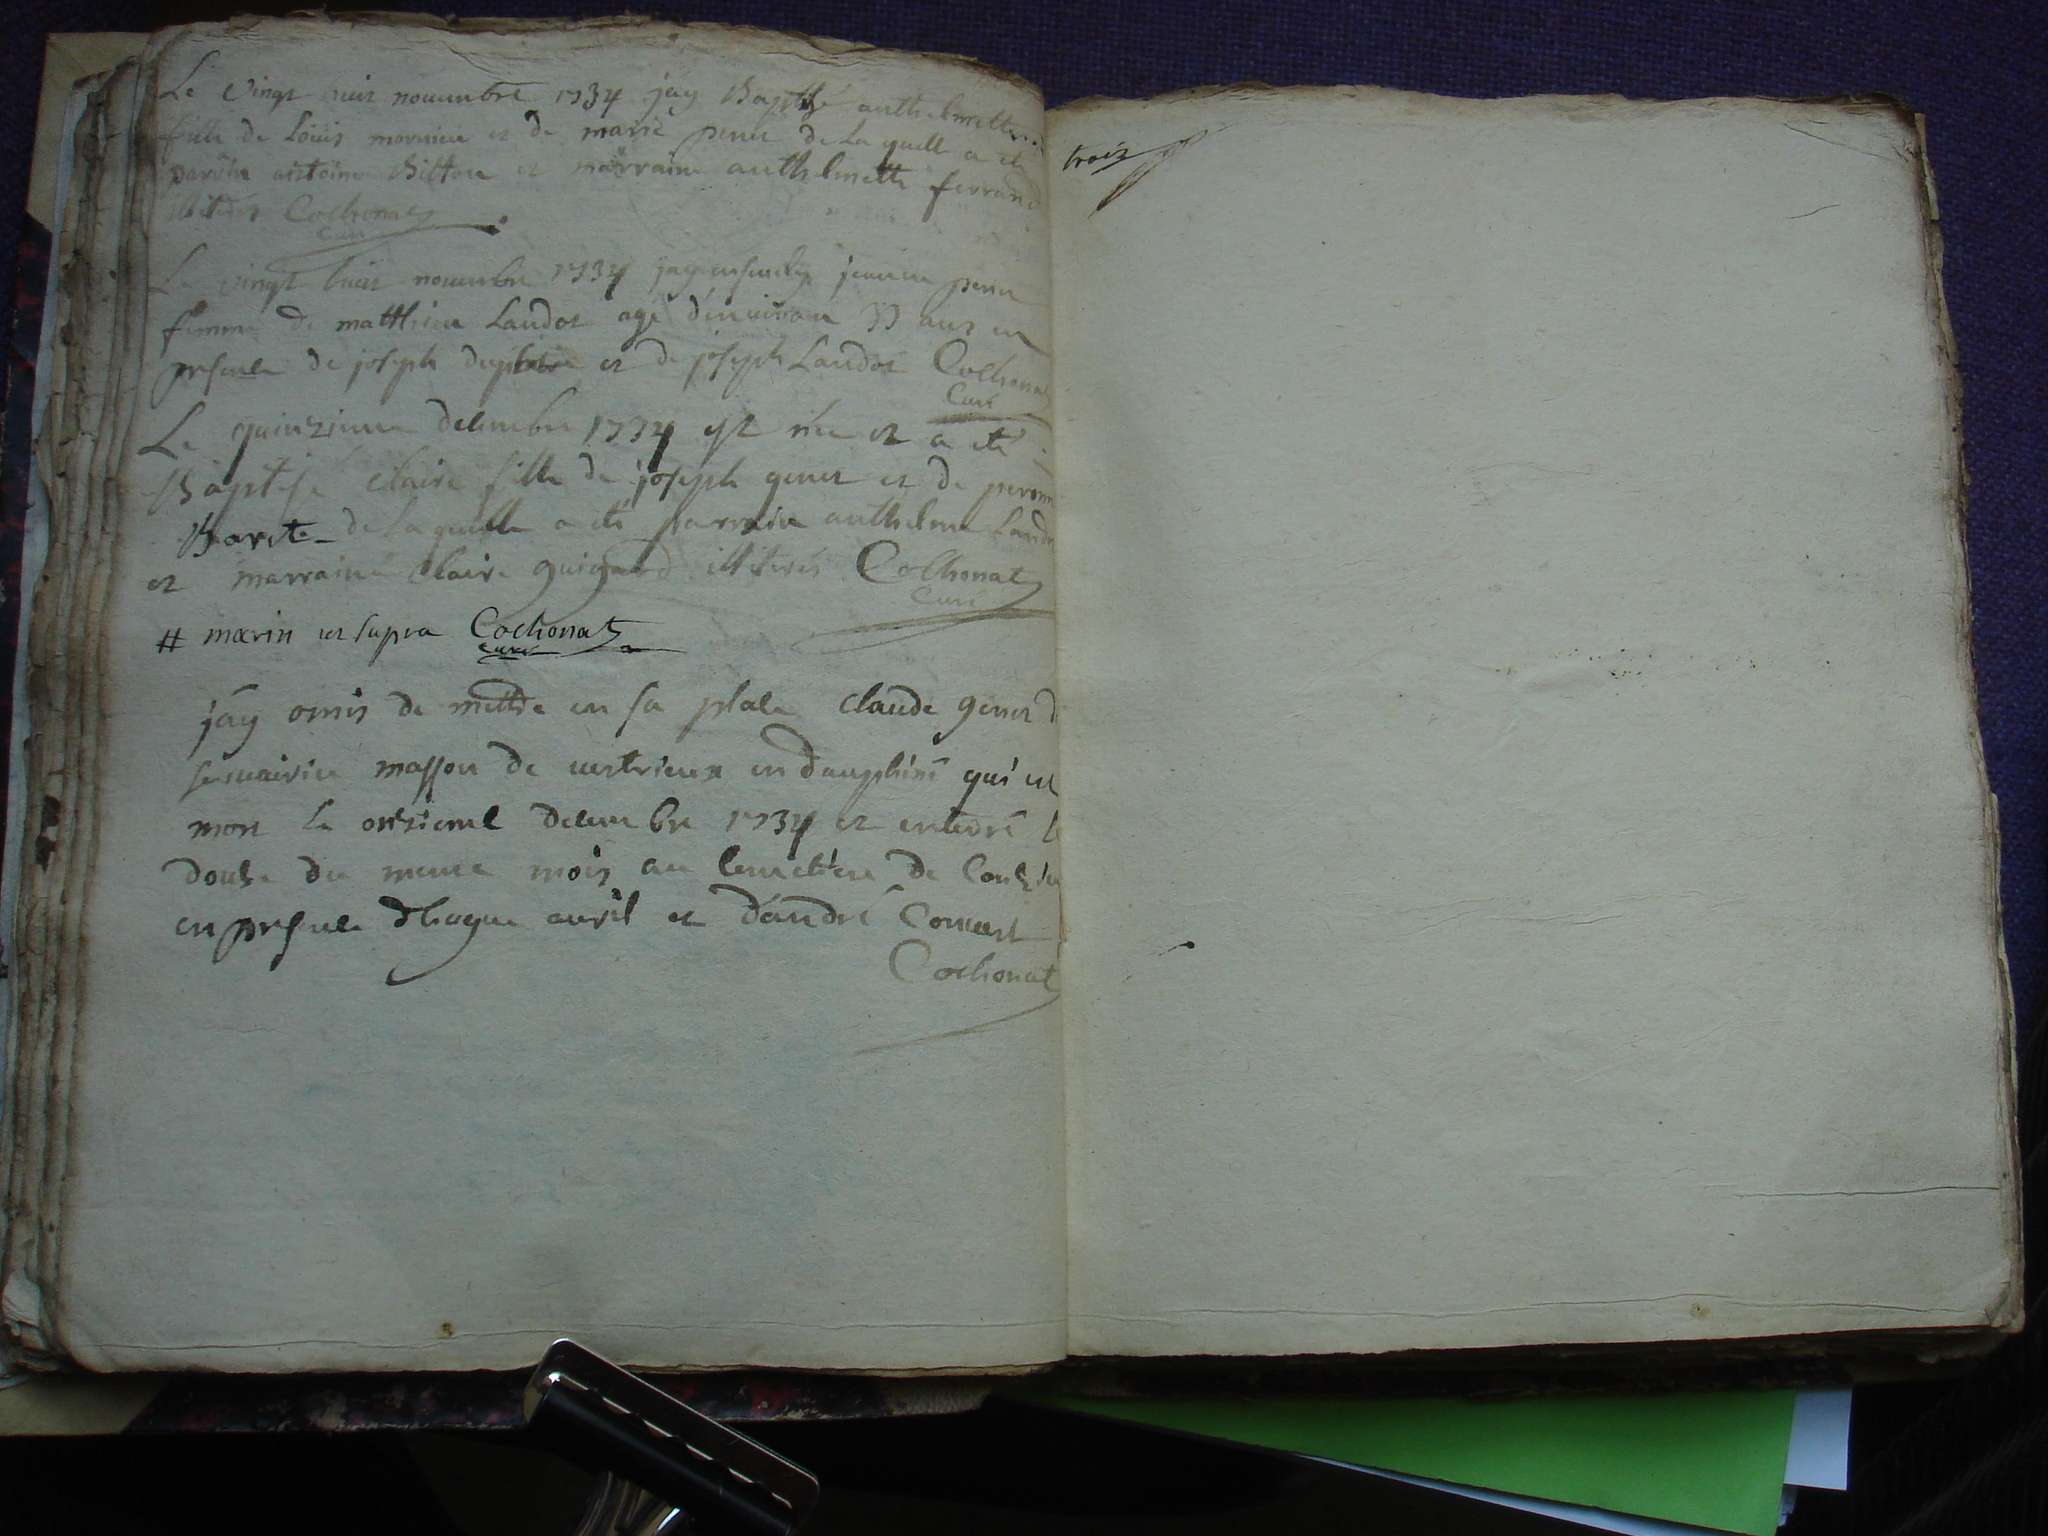 Le vingt nouembre 1734 jay Baptisé anthelmette
fille de Louis et de marie peret de Laquelle a eté
parain antoine Bitton et marraine anthelmette ferrand
illiterés Cochonat
Curé
Le vingt huit nouembre 1734 jay enseuely jeanne peret
femme de matthieu Landot agé d'enuiron 55 ans en
presence de joseph et de joseph Landot Cochonat
Curé
Le quinzieme decembre 1734 est née et a eté
Baptisé Claire fille de joseph genet et de peronne
Baret de laquelle a eté parrain anthelme Landot
et marraine Claire guigard illiterés Cochonat
Curé
# marin ut supra Cochonat
curé
jay omis de mettre en sa place Claude genet d
masson de uertrieux en dauphiné qui est
mort le onzieme decembre 1734 et enterré le
douze du meme mois au Cemetiere de Conzieu
en presence auril et d'andré Conuert
Cochonat
trois